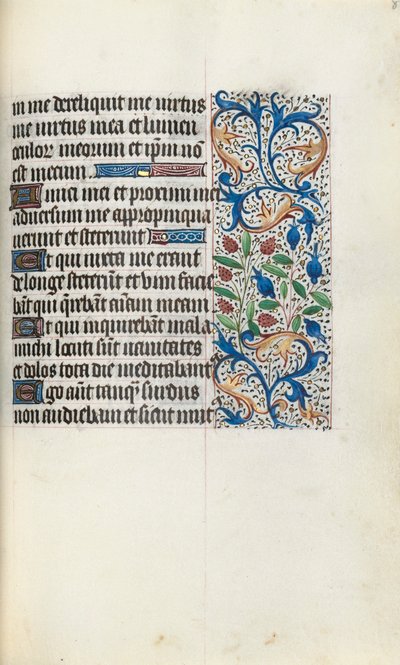 in me dereliquit me virtus
me virtus mea et lumen
oculoꝝ meorum et ip̄m nō
est mecum
Amici mei et proximi mei
adversum me appropinqua
verunt et steterunt
Et qui iuxta me erant
de longe steterūt et vim facie
bāt qui q̄rebāt aīam meam
Et qui inquirebāt mala
michi locuti sūt vanitates
et dolos tota die meditabant᷑
Ego aūt tanq̄ surdus
non audiebam et sicut mut᷒